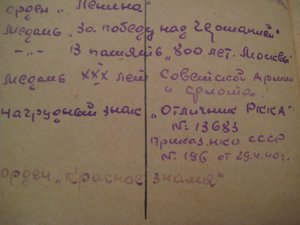 орден „Ленина"
Медаль „За победу над Германией"
-„- В память „800 лет. Москвы
Медаль XXX лет Советской Армии
и флота.
нагрудный знак „Отличник РККА"
№ 13683
Приказ НКО СССР
№ 196 от 29.4.40г.
орден „Красное знамя"